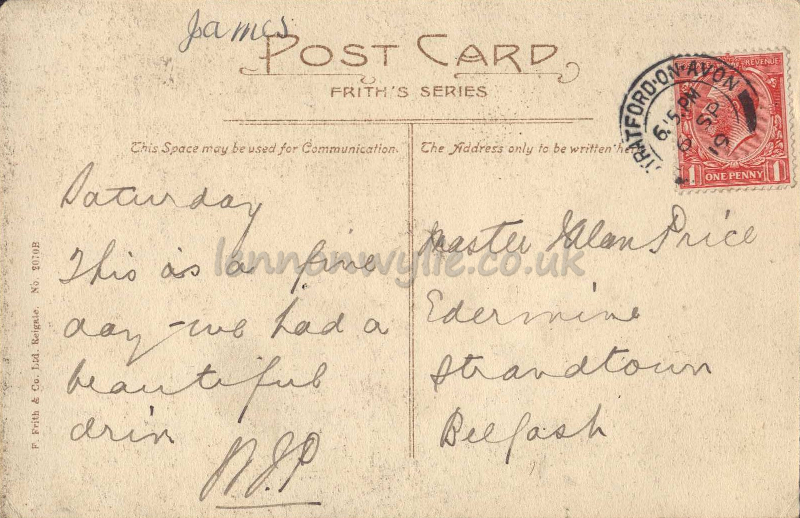 James
POST CARD
FRITH'S SERIES
This Space may be used for Communication.
The Address only to be written here
STRATFORD-ON-AVON
6.15 PM
6 SP
19
REVENUE
ONE PENNY
1 1
lennonwylie.co.uk
Saturday
This is a fine
day - we had a
beautiful
driv
Master Alan Price
Edermine
Strandtown
Belfast
F. Frith & Co. Ltd. Reigate. No. 2070B